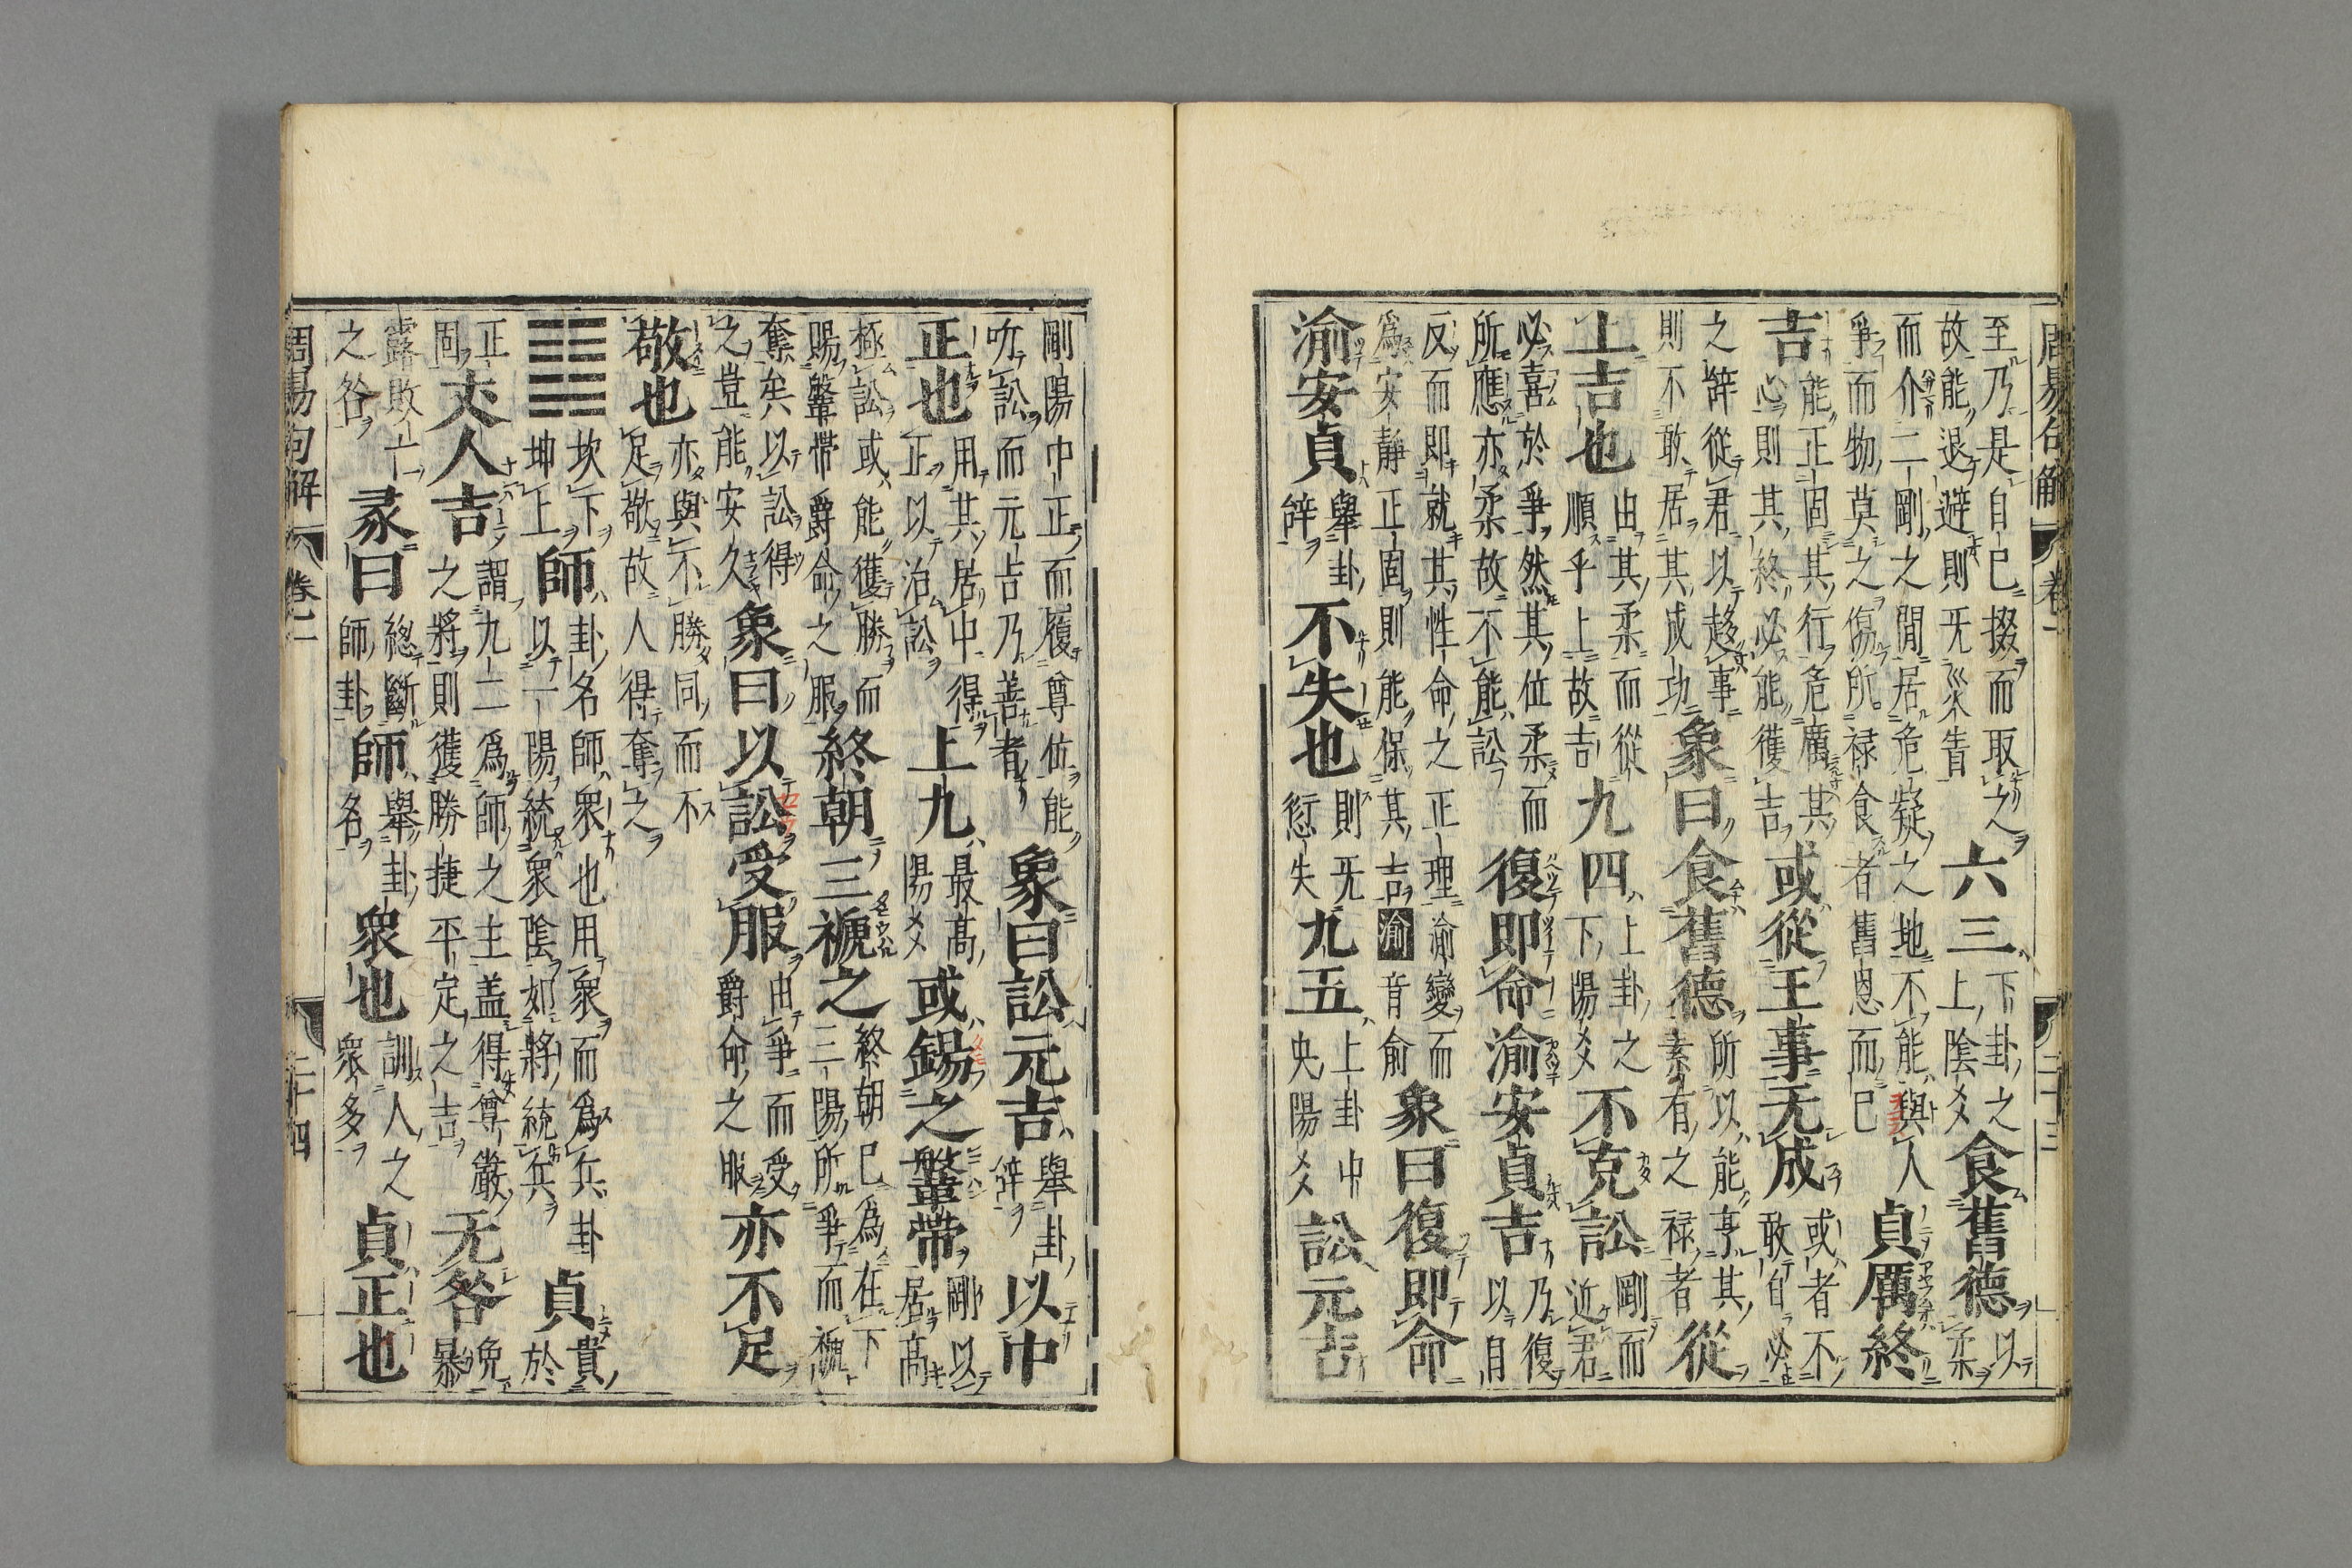 周易句解 卷二 二十三
至乃是自己掇而取之故能退避則旡災眚六三下卦之上陰爻食舊德以柔
而介二剛之閒居危疑之地不能與人爭而物莫之傷所祿食者舊恩而已貞厲終
吉能正固其行危厲其心則其終必能獲吉或從王事无成或者不敢自必
之辭從君以趍事則不敢居其成功象曰食舊德所以能享其素有之祿者從
上吉也由其柔而從順乎上故吉九四上卦之下陽爻不克訟剛而近君
必喜於爭然其位柔而所應亦柔故不能訟復即命渝安貞吉乃復以自
反而即就其性命之正理渝變而爲安靜正固則能保其吉渝音俞象曰復即命
渝安貞舉卦辭不失也則旡愆失九五上卦中央陽爻訟元吉
剛陽中正而履尊位能听訟而元吉乃善者象曰訟元吉舉卦辭以中
正也用其居中得正以治訟上九最高陽爻或錫之鞶帶剛以居高
極訟或能獲勝而賜鞶帶爵命之服終朝三褫之終朝已爲在下三陽所爭而褫
奪矣以訟得之豈能安久象曰以訟受服由爭而受爵命之服亦不足
敬也亦與不勝同而不足敬故人得奪之
坎下坤上師卦名師衆也用衆而爲兵卦以一陽統衆陰如將統兵貞貴於
正固丈人吉謂九二爲師之主盖得尊嚴之將則獲勝捷平定之吉无咎免暴
露敗亡之咎彖曰總斷師卦師舉卦名衆也訓人之衆多貞正也
周易句解 卷二 二十四